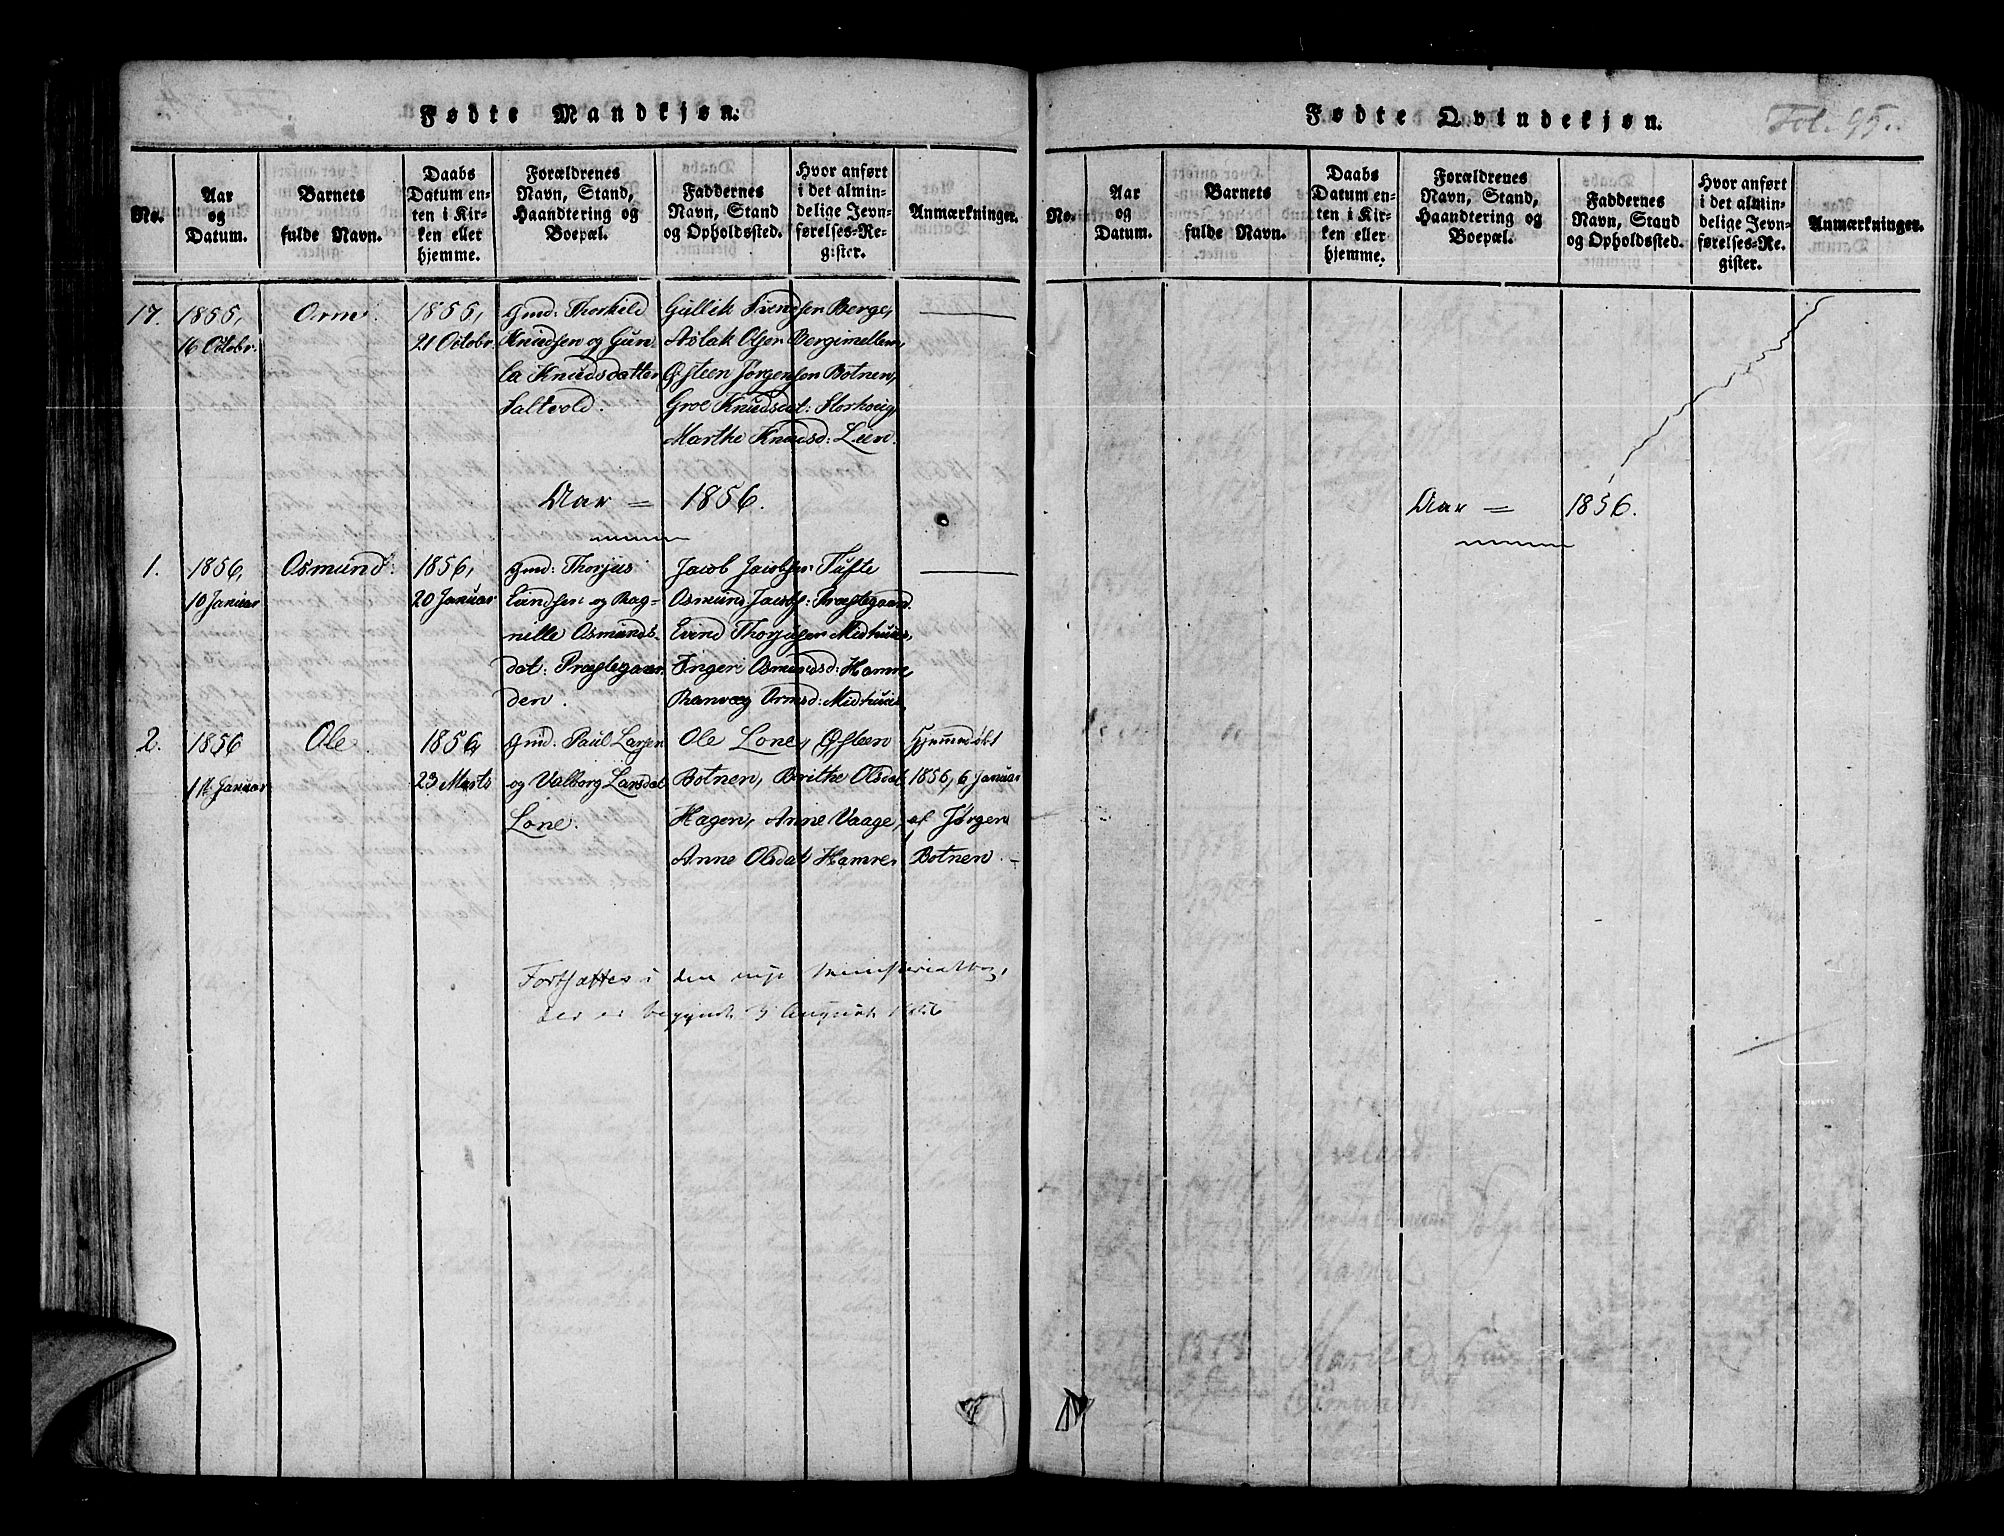 Fødte Mandkjøn.
No.
Aar og Datum.
Barnets fulde Navn.
Daabs Datum enten i Kirken eller hjemme.
Forældrenes Navn, Stand, Haandtering og Boepæl.
Faddernes Navn, Stand og Opholdssted.
Hvor anført i det almindelige Jevnførelses-Register.
Anmærkninger.
17.
1855,
16 Octobr.
Orm.
1855,
21 Octobr.
Gmd: Thorkild
Knudsen og Gun-
la Knudsdatter
Saltvold.
Gullik Svendsen Berge,
Aslak Olsen Bergimellem,
Østeen Jørgensen Botnen,
Groe Knudsdat: Storhoug,
Marthe Knudsd: Lien.
Aar = 1856.
1.
1856,
10 Januar
Osmund.
1856,
20 Januar
Gmd: Thorjus
Eivindsen og Rag-
nille Osmunds-
dat: Præstegaar-
den.
Jacob Jacobsen Tufte
Osmund Jacobs: Præstegaard
Evind Thorjusen Midhuus,
Ingeri Osmundsd: Hamre,
Ranvæg Ormsd: Midhuus.
2.
1856
1ste Januar
Ole.
1856,
23 Marts
Gmd: Paul Larsen
og Valborg Larsdat
Lone.
Ole Lone, Østeen
Botnen, Birthe Olsdat
Hagen, Anne Vaage,
Anne Olsdat Hamre,
Hjemmedøbt
1856, 6 Januar
af Jørgen
Botnen.
Fortsættes i den nye Ministerialbog,
der er begyndt 3 August 1856
Fødte Qvindekjøn.
Fol. 95.
No.
Aar og Datum.
Barnets fulde Navn.
Daabs Datum enten i Kirken eller hjemme.
Forældrenes Navn, Stand, Haandtering og Boepæl.
Faddernes Navn, Stand og Opholdssted.
Hvor anført i det almindelige Jevnførelses-Register.
Anmærkninger.
Aar = 1856.